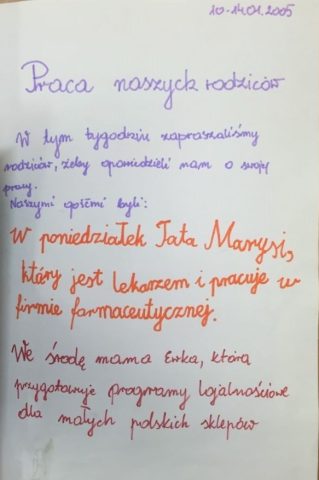 10-14.01.2005
Praca naszych rodziców
W tym tygodniu zapraszaliśmy
rodziców, żeby opowiedzieli nam o swojej
pracy.
Naszymi gośćmi byli:
W poniedziałek Tata Marysi,
który jest lekarzem i pracuje w
firmie farmaceutycznej.
We środę mama Erka, która
przygotowuje programy lojalnościowe
dla małych polskich sklepów